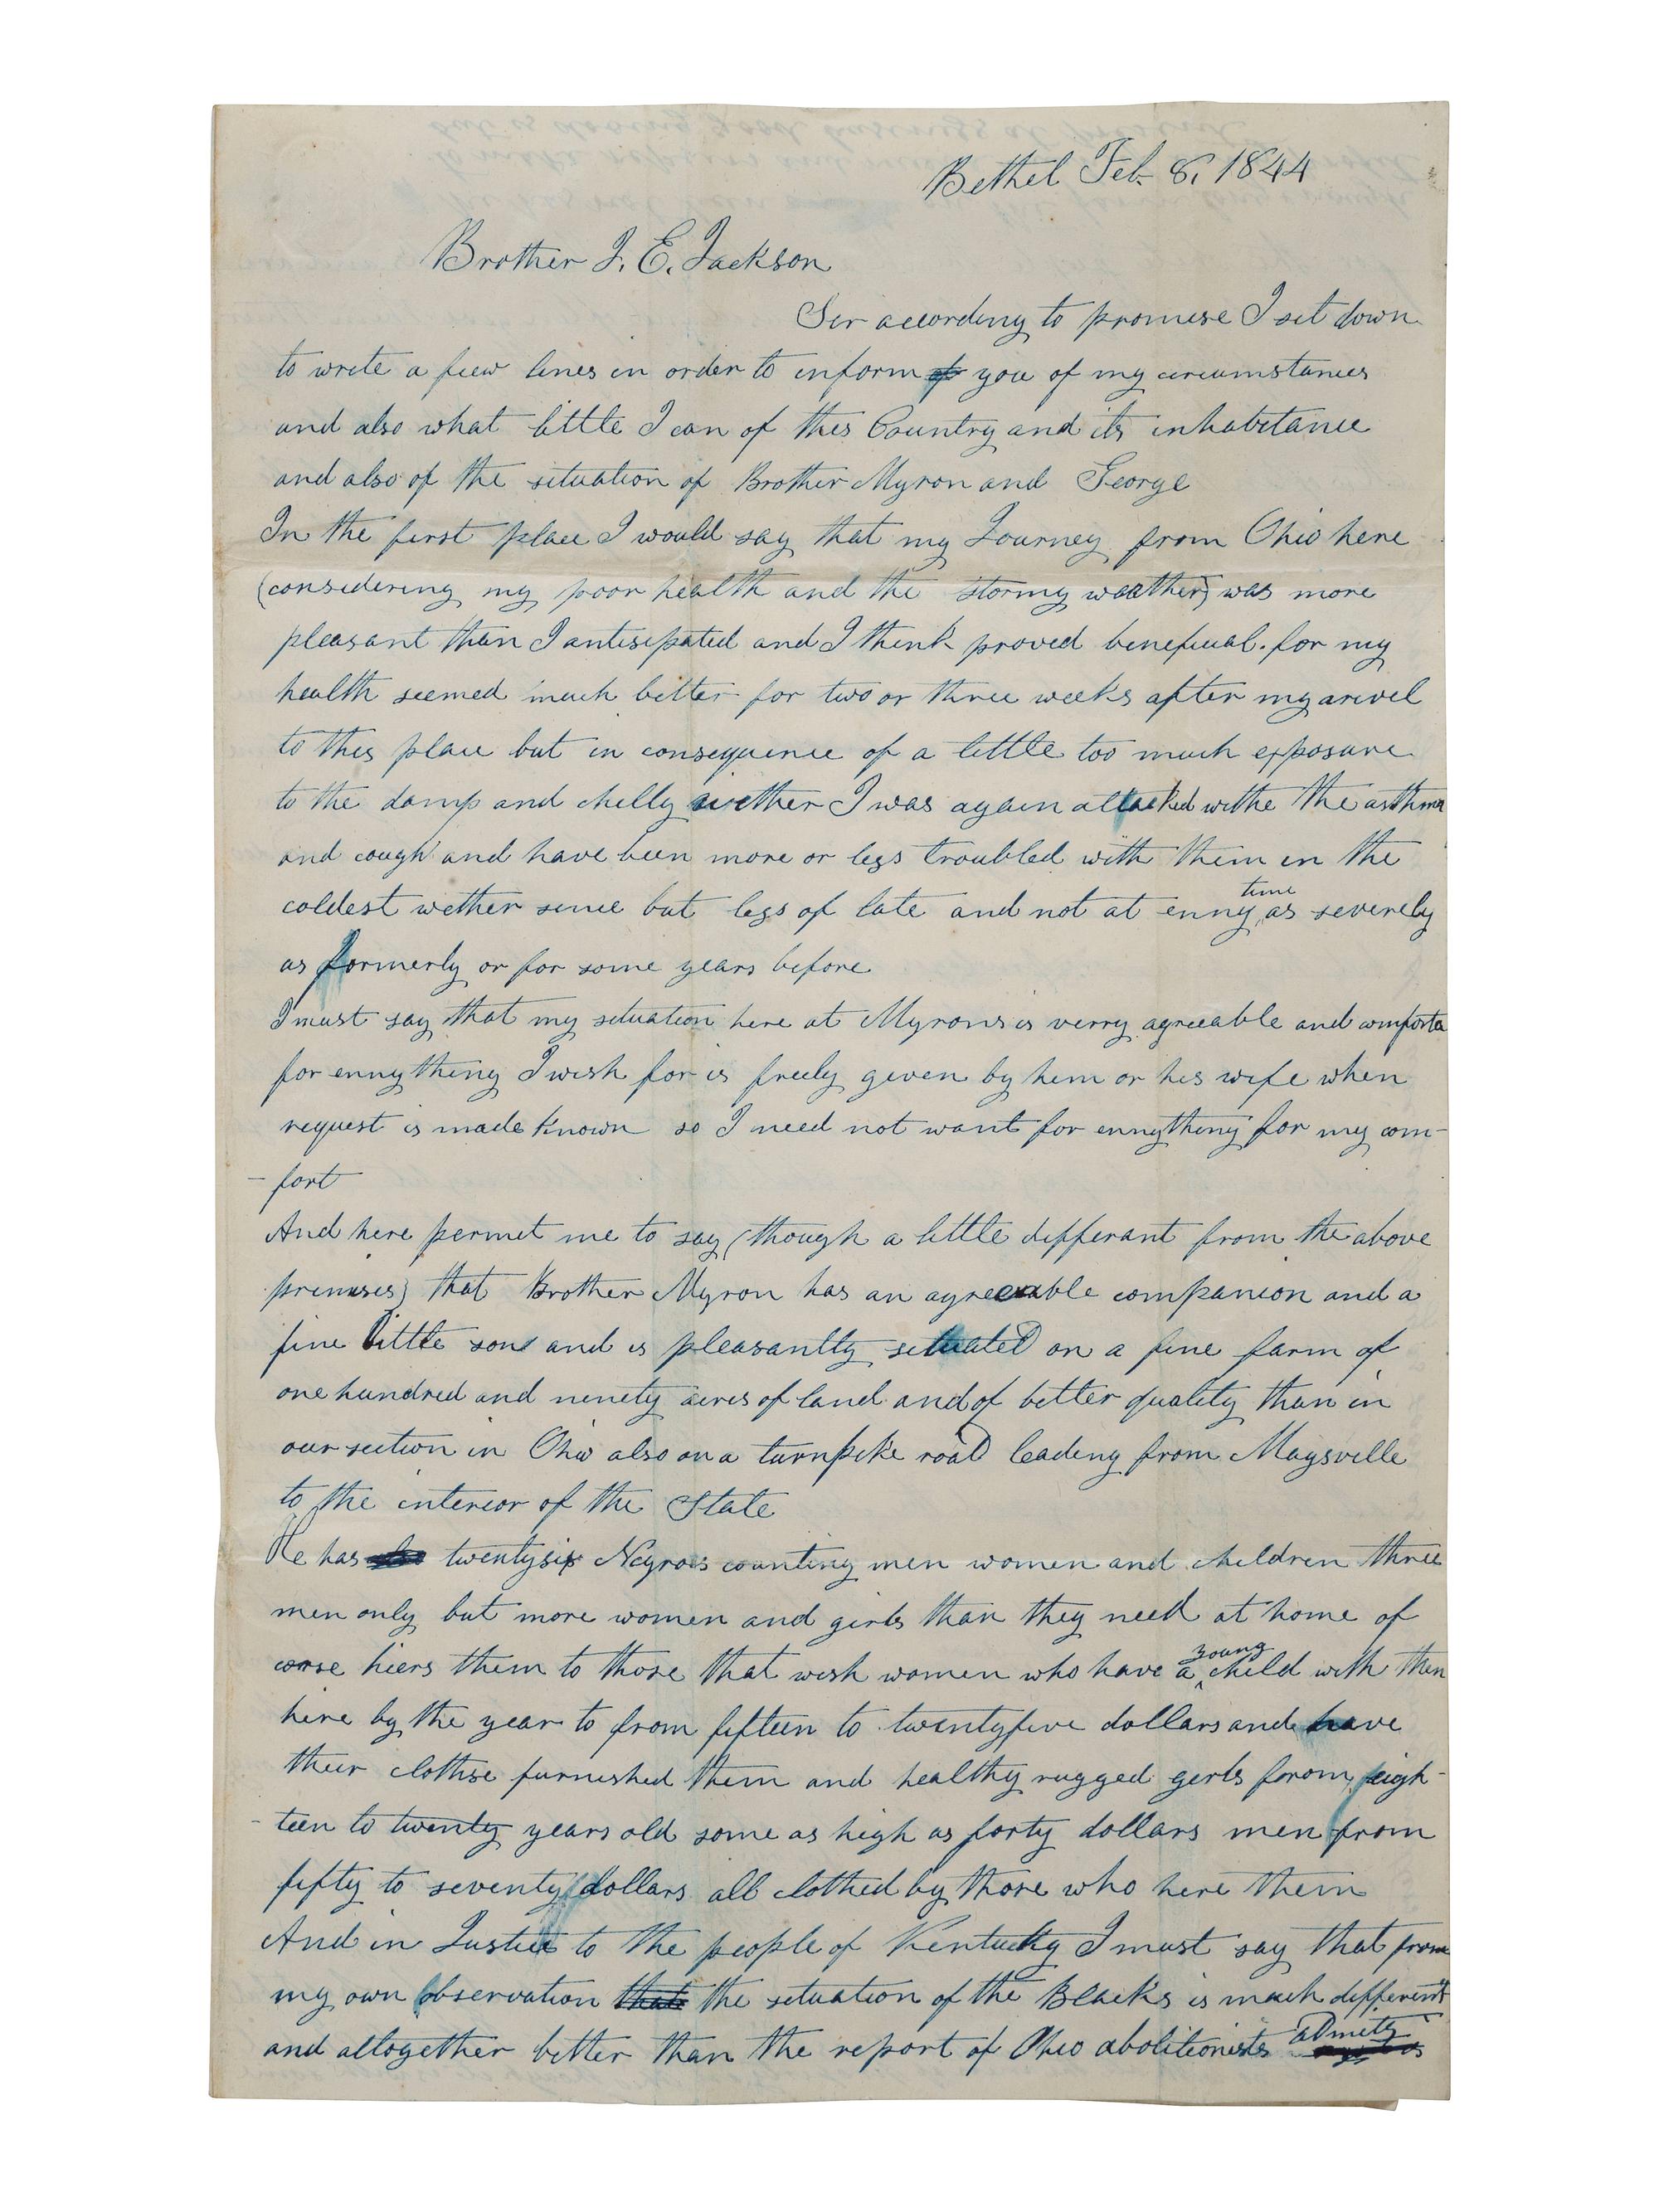 Bethel Feb. 8, 1844
Brother J. E. Jackson
Sir according to promise I sit down
to write a fiew lines in order to inform of you of my circumstances
and also what little I can of this Country and its inhabitance
and also of the situation of Brother Myron and George
In the first place I would say that my Journey from Ohio here
(considering my poor health and the stormy weather) was more
pleasant than I antisipated and I think proved beneficial. for my
health seemed much better for two or three weeks after my arivel
to this place but in consequence of a little too much exposure
to the damp and chilly wether I was again attacked withe the asthma
and cough and have been more or less troubled with them in the
coldest wether since but less of late and not at enny time as severely
as formerly or for some years before
I must say that my situation here at Myrons is verry agreeable and comforta
for ennything I wish for is freely given by him or his wife when
request is made known so I need not want for ennything for my com-
-fort
And here permit me to say (though a little differant from the above
premises) that Brother Myron has an agreeable companion and a
fine little son and is pleasantly situated on a fine farm of
one hundred and ninety acres of land and of better quality than in
our section in Ohio also on a turnpike road leading from Maysville
to the interior of the State
He has also twentysix Negroes counting men women and children three
men only but more women and girls than they need at home of
corse hiers them to those that wish women who have a young child with them
hire by the year to from fifteen to twentyfive dollars and have
their clothse furnished them and healthy rugged girls from eigh-
-teen to twenty years old some as high as forty dollars men from
fifty to seventy dollars all clothed by those who here them
And in Justice to the people of Kentucky I must say that from
my own observation that the situation of the Blacks is much different
and altogether better than the report of Ohio abolitionists admits